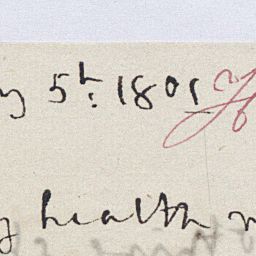 y 5th. 1801
y health